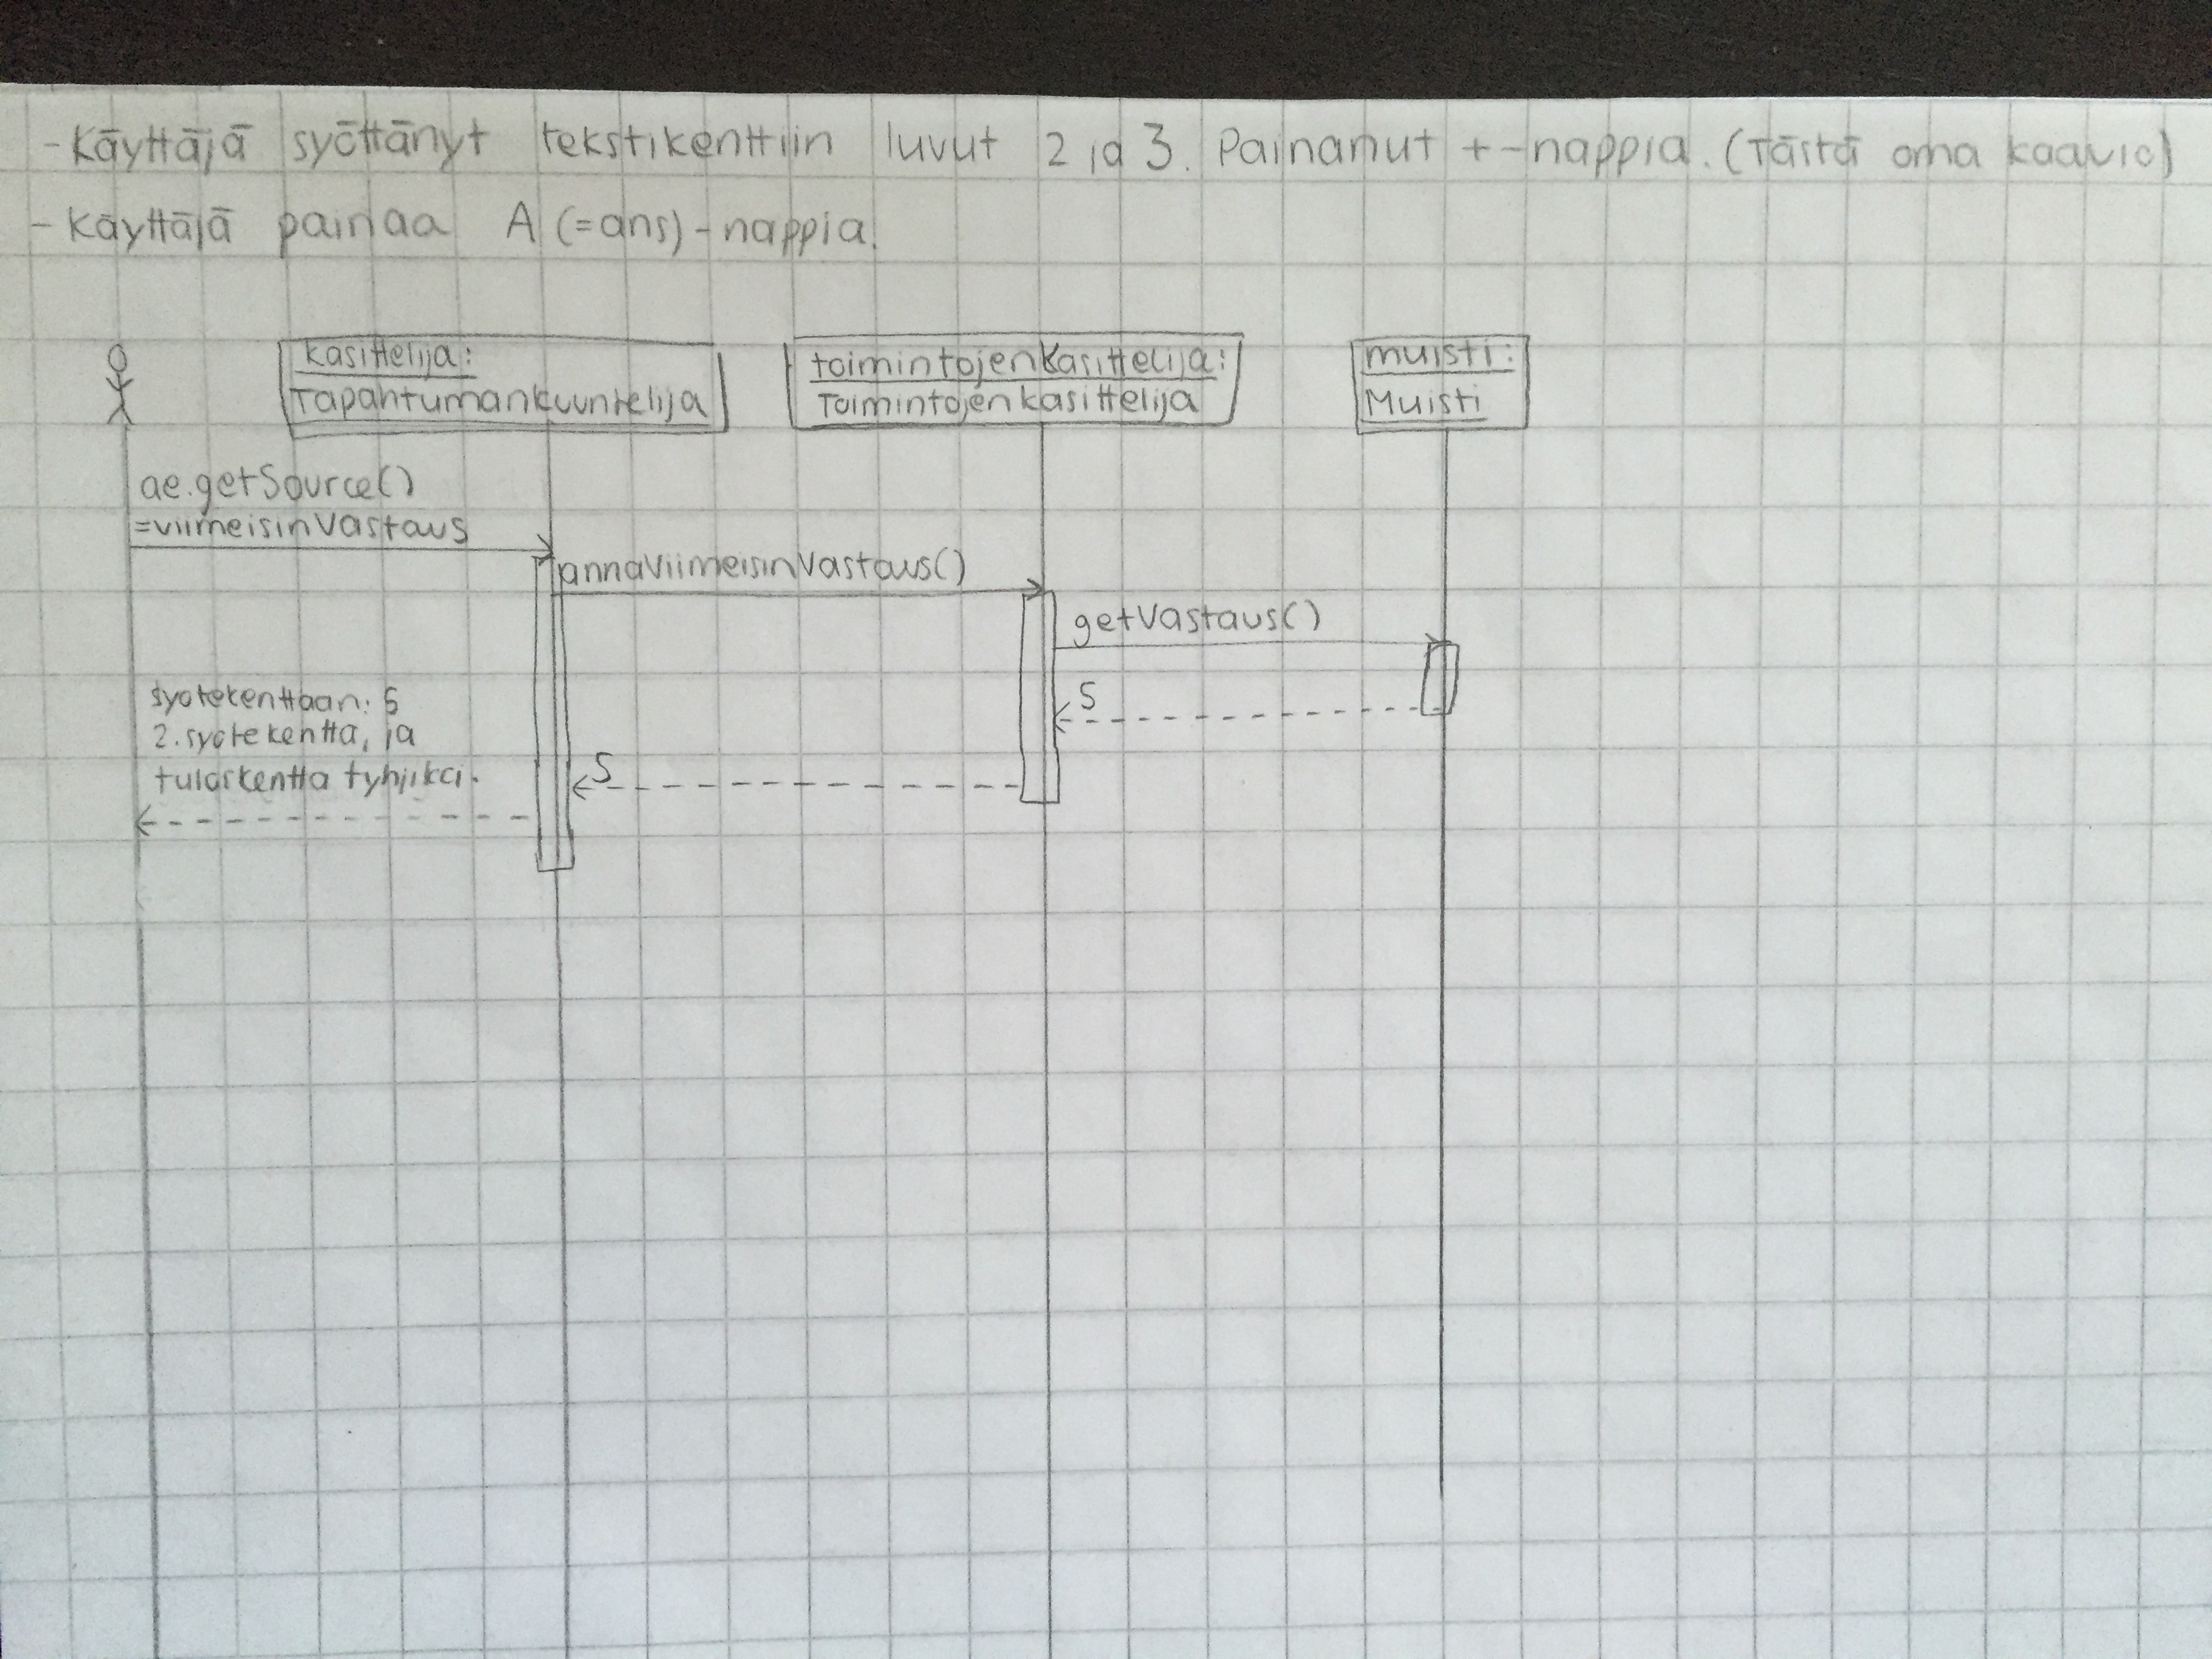 - Käyttäjä syöttänyt tekstikenttiin luvut 2 ja 3. Painanut +-nappia. (Tästä oma kaavio)
- Käyttäjä painaa A (=ans) - nappia.
kasittelija:
Tapahtumankuuntelija
toimintojenkasittelija:
Toimintojenkasittelija
muisti:
Muisti
ae.getSource()
=viimeisinVastaus
annaViimeisinVastaus()
getVastaus()
5
syotekenttaan: 5
2. syotekentta, ja
5
tuloskentta tyhjiksi.